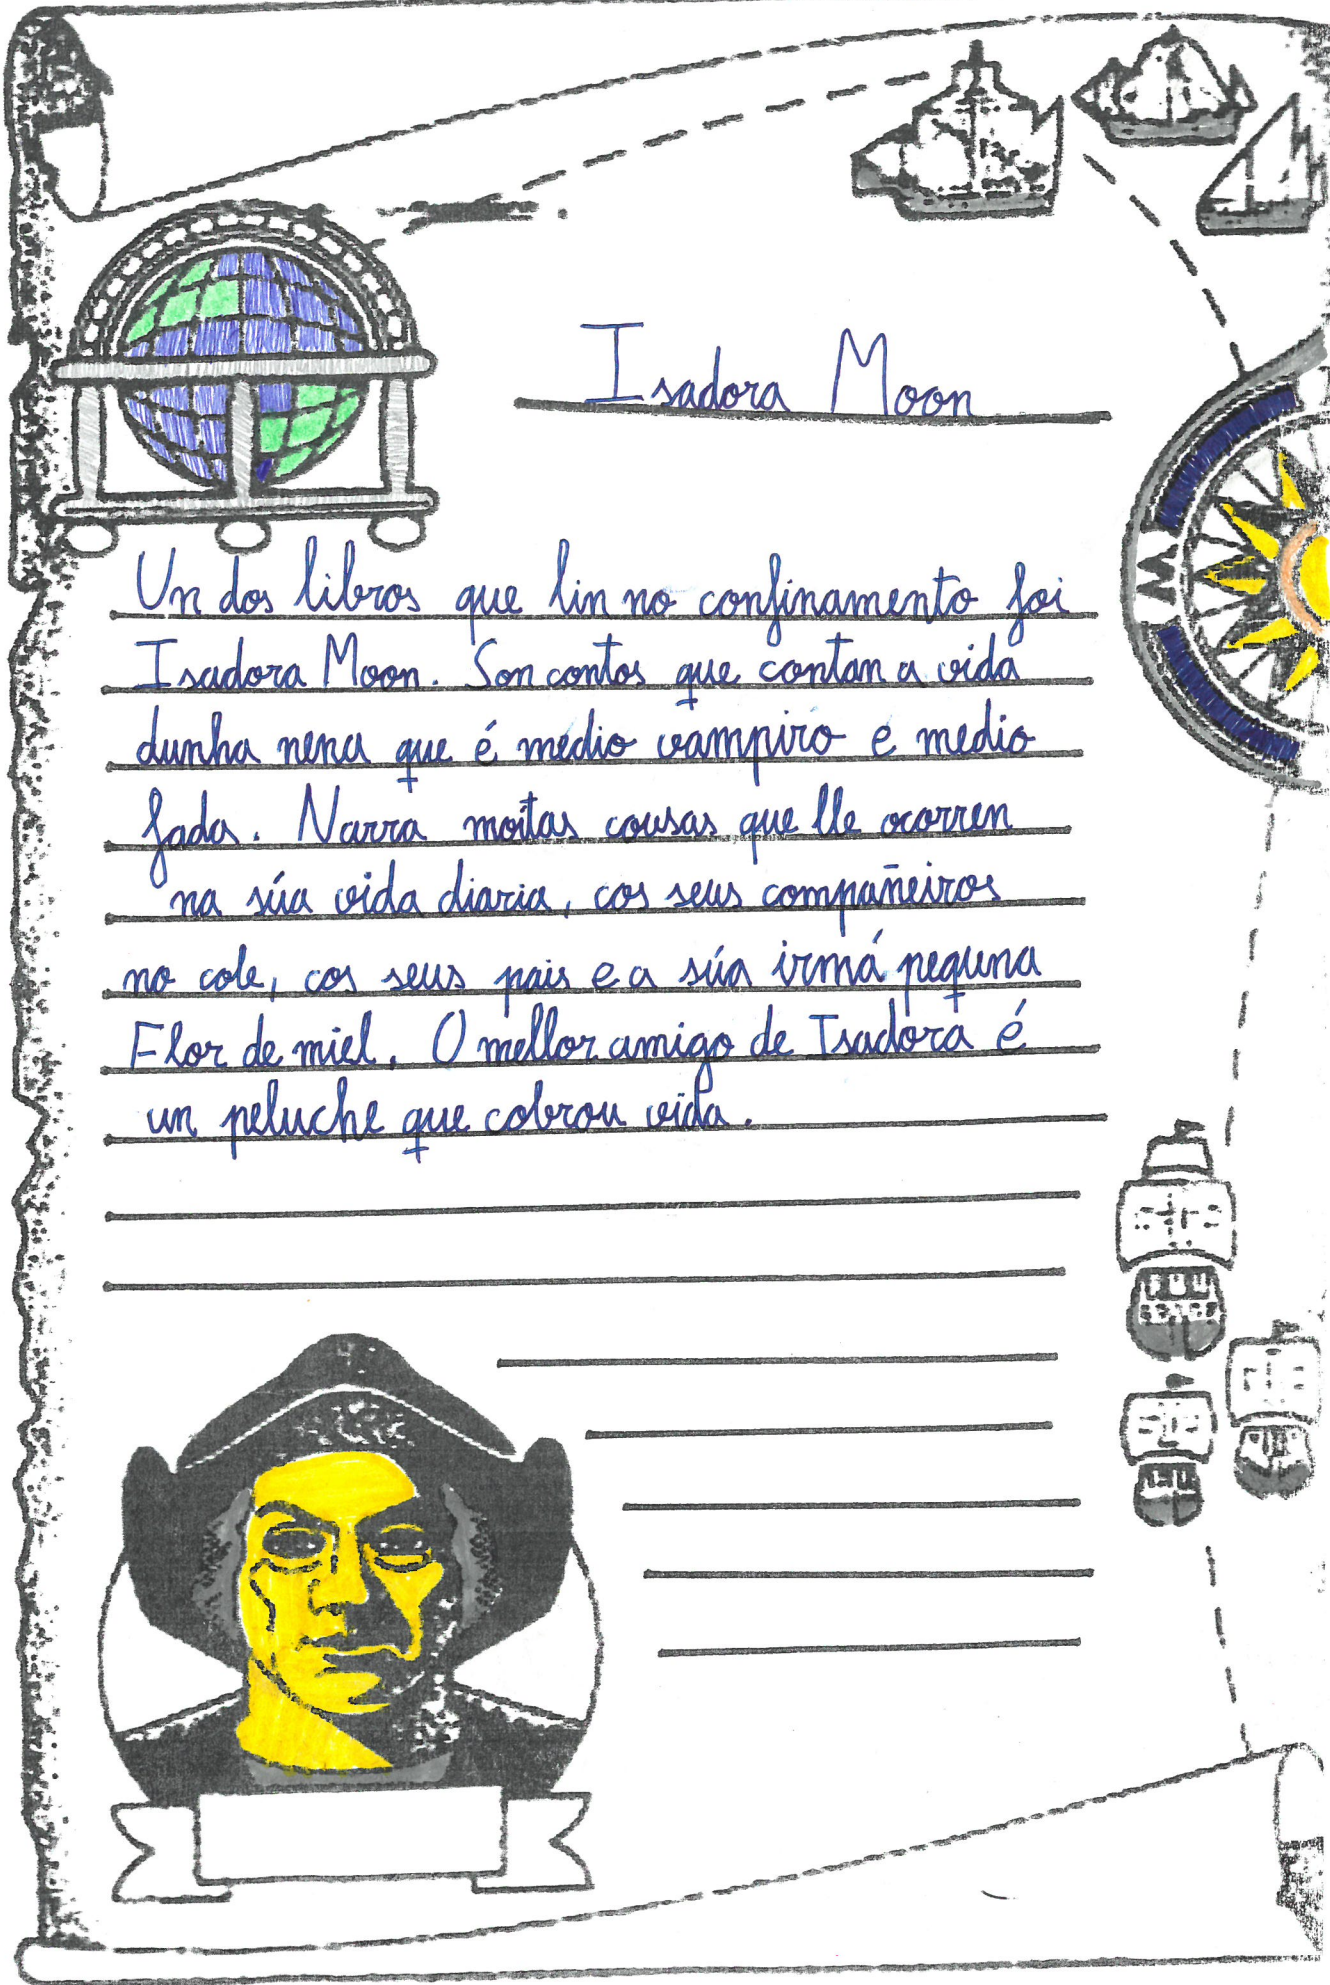 Isadora Moon
Un dos libros que lin no confinamento foi
Isadora Moon. Son contos que contan a vida
dunha nena que é medio vampiro e medio
fada. Narra moitas cousas que lle ocorren
na súa vida diaria, cos seus compañeiros
no cole, cos seus pais e a súa irmá pequna
Flor de miel. O mellor amigo de Isadora é
un peluche que cobrou vida.